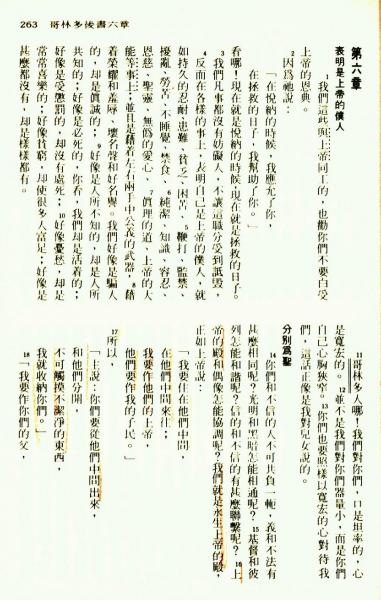 263 哥林多後書六章
第六章
表明是上帝的僕人
1我們這些與上帝同工的,也勸你們不要白受
上帝的恩典。
2因為祂說:
「在悅納的時候,我應允了你,
在拯救的日子,我幫助了你。」
看哪!現在就是悅納的時候,現在就是拯救的日子。
3我們凡事都沒有妨礙人,不讓這職分受到詆毀,
4反而在各樣的事上,表明自己是上帝的僕人,就
如持久的忍耐、患難、貧乏、困苦、5鞭打、監禁、
擾亂、勞苦、不睡覺、禁食、6純潔、知識、容忍、
恩慈、聖靈、無偽的愛心、7眞理的道、上帝的大
能等事上;並且是藉着左右兩手中公義的武器,8藉
着榮耀和羞辱,壞名聲和好名譽。我們好像是騙人
的,却是眞誠的;9好像是人所不知的,却是人所
共知的;好像是必死的,你看,我們却是活着的;
好像是受懲罰的,却沒有處死;10好像憂愁,却是
常常喜樂的;好像貧窮,却使很多人富足;好像是
甚麼都沒有,却是樣樣都有。
11哥林多人哪!我們對你們,口是坦率的,心
是寬宏的。12並不是我們對你們器量小,而是你們
自己心胸狹窄。13你們也要照樣以寬宏的心對待我
們,這話正像是我對兒女說的。
分別為聖
14你們和不信的人不可共負一軛,義和不法有
甚麼相同呢?光明和黑暗怎能相通呢?15基督和彼
列怎能和諧呢?信的和不信的有甚麼聯繫呢?16上
帝的殿和偶像怎能協調呢?我們就是永生上帝的殿,
正如上帝說:
「我要住在他們中間,
在他們中間來往;
我要作他們的上帝,
他們要作我的子民。」
17所以,
「主說:你們要從他們中間出來,
和他們分開,
不可觸摸不潔淨的東西,
我就收納你們。」
18「我要作你們的父,